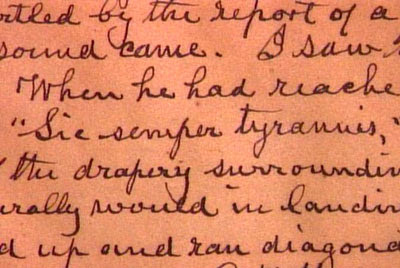 ortled by the report of a
sound came. I saw
When he had reache
"Sic semper tyrannis,"
the drapery surroundin
urally would in landin
d up and ran diagona